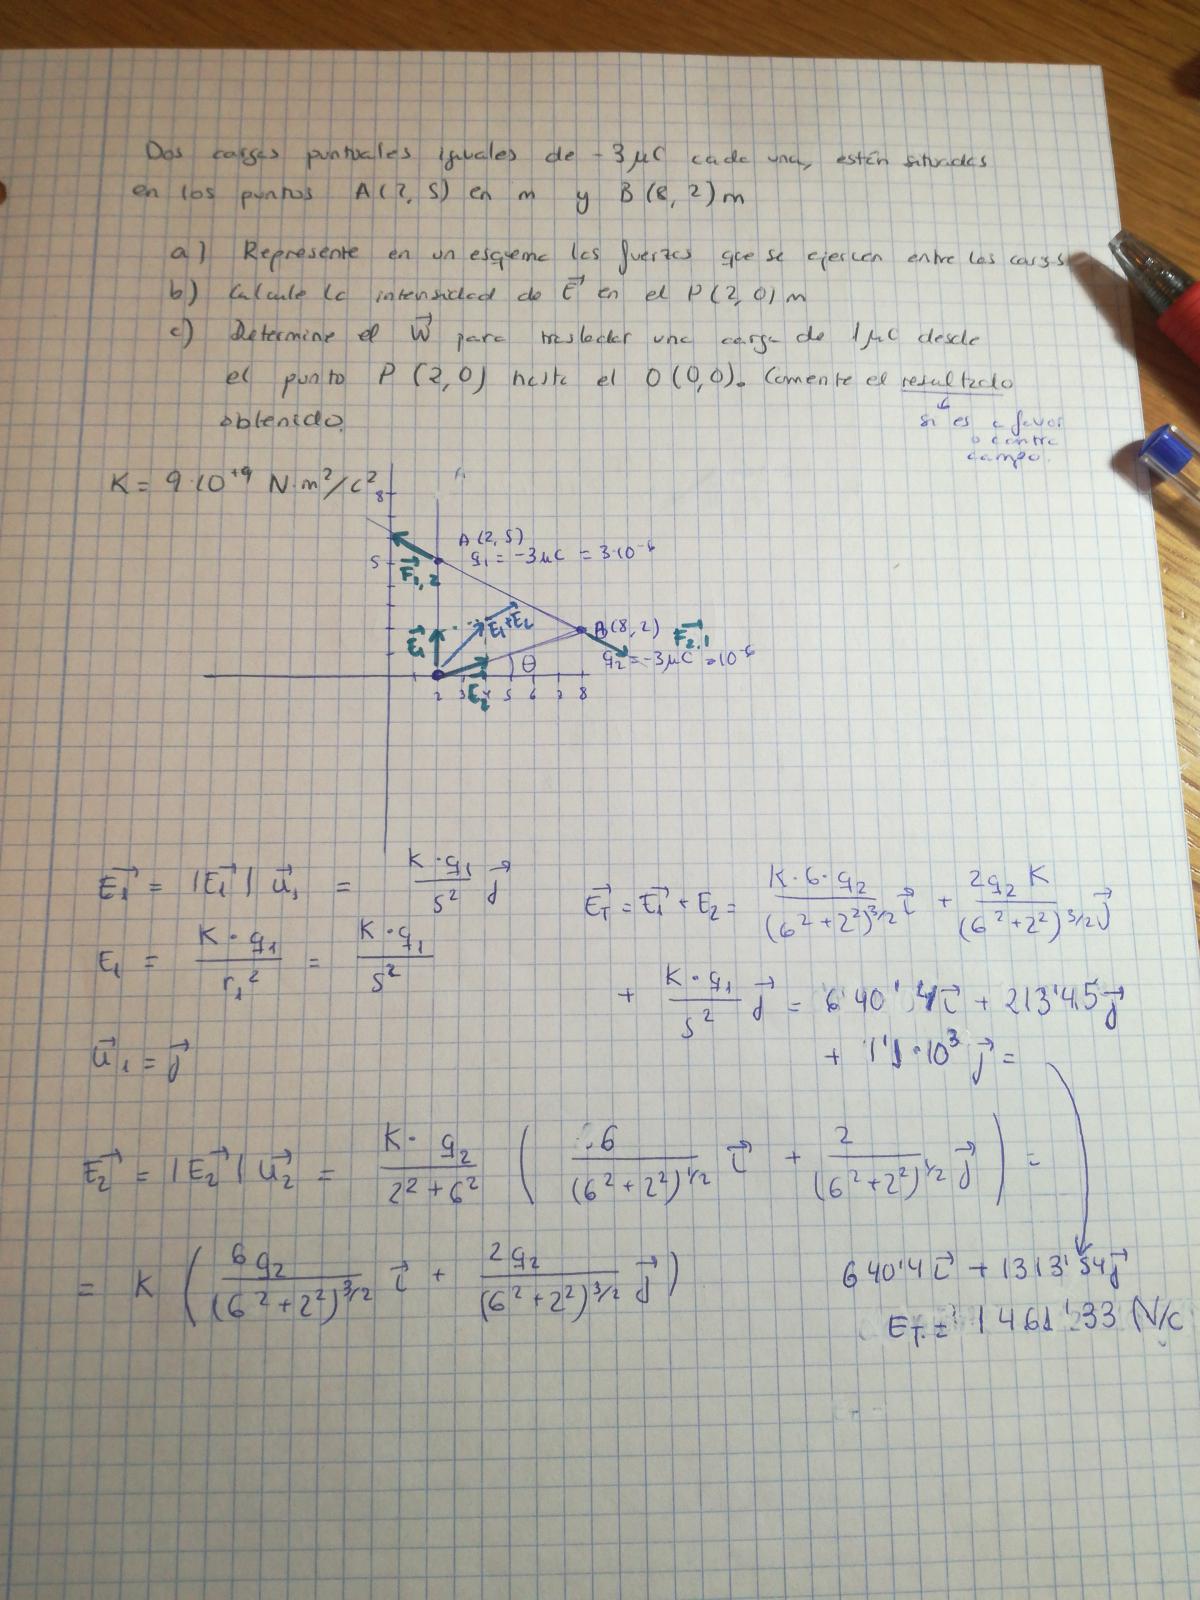 Dos cargas puntuales iguales de -3 μC cada una, están situadas
en los puntos A(2, 5) en m y B(8, 2) m
a) Represente en un esquema las fuerzas que se ejercen entre las cargas
b) Calcule la intensidad de E⃗ en el P(2, 0) m
c) Determine el W⃗ para trasladar una carga de 1 μC desde
el punto P (2,0) hasta el O(0,0). Comente el resultado
obtenido.
si es a favor
o contra
campo.
K = 9·10⁺⁹ N·m²/c²
8
A(2, 5)
q₁ = -3μC = 3·10⁻⁶
5
F⃗₁,₂
E⃗₁
E⃗₁+E₂
B(8, 2)
F⃗₂,₁
q₂ = -3μC = 10⁻⁶
θ
E⃗₂
2 3 4 5 6 7 8
E⃗₁ = |E⃗₁| u⃗₁ = K·q₁/5² j⃗
E₁ = K·q₁/r₁² = K·q₁/5²
u⃗₁ = j⃗
E⃗₂ = |E⃗₂| u⃗₂ = K·q₂/(2²+6²) (6/(6²+2²)^1/2 i⃗ + 2/(6²+2²)^1/2 j⃗) =
= K (6q₂/(6²+2²)^3/2 i⃗ + 2q₂/(6²+2²)^3/2 j⃗)
E⃗T = E⃗₁ + E₂ = K·6·q₂/(6²+2²)^3/2 i⃗ + 2q₂K/(6²+2²)^3/2 j⃗
+ K·q₁/5² j⃗ = 640'4 i⃗ + 213'45 j⃗
+ 1'1·10³ j⃗ =
640'4 i⃗ + 1313'54 j⃗
ET = 1461'33 N/c